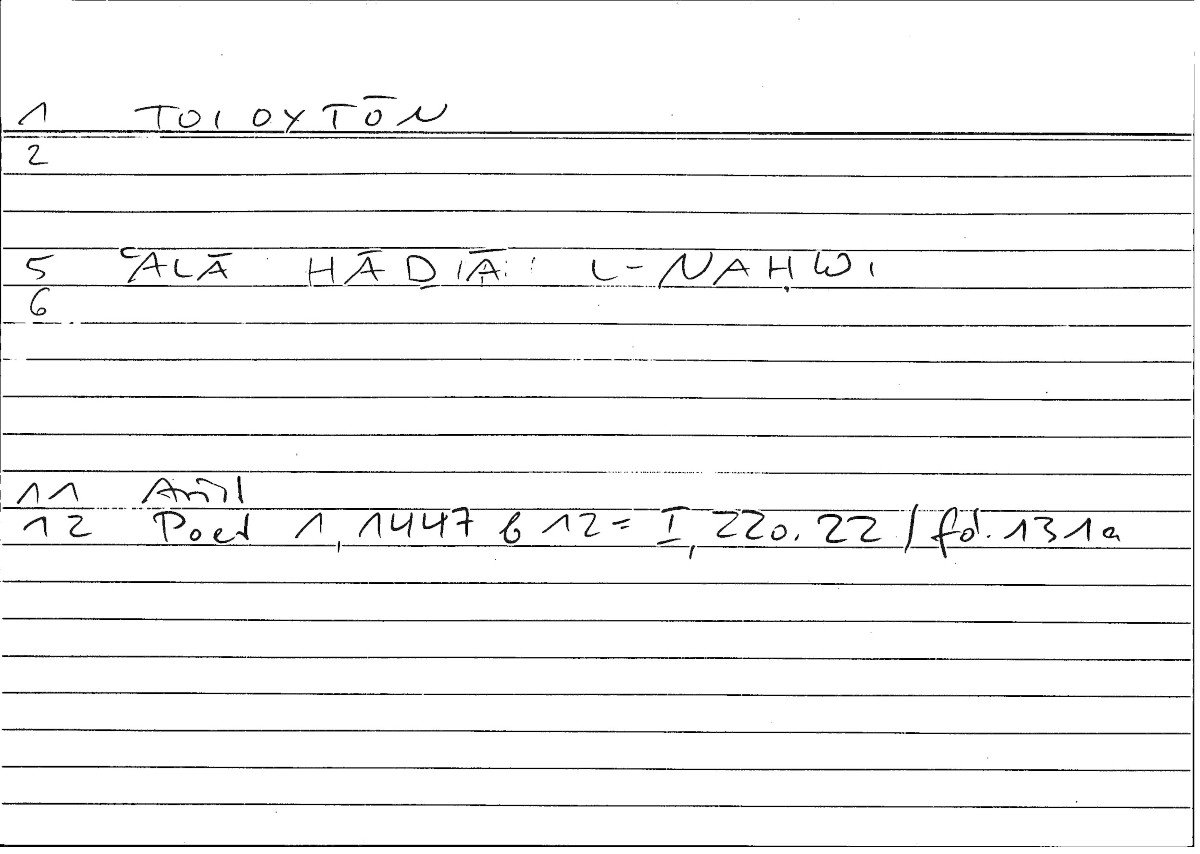 1 TOIOYTŌN
2
5 ʿALĀ HĀḎĀ L-NAḤWI
6
11 Arist
12 Poet 1, 1447 b 12 = I, 220.22 / fol. 131a